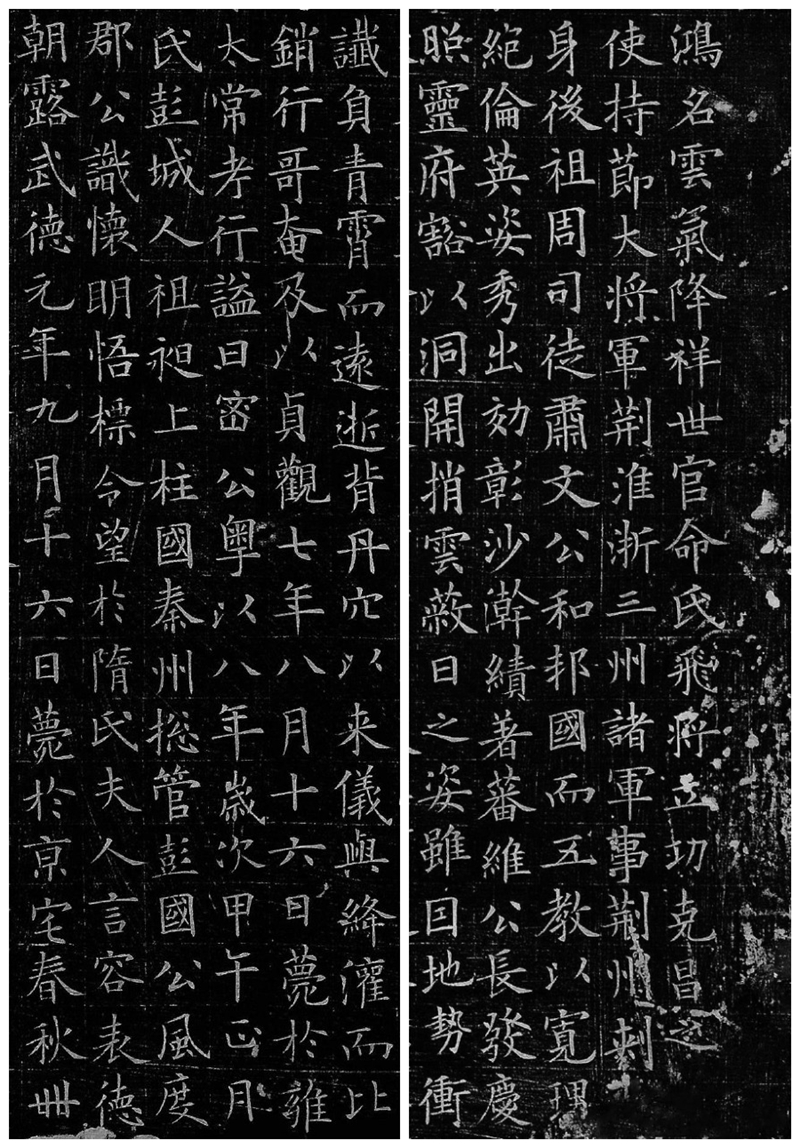 鴻名雲氣降祥世官命氏飛將立功克昌之
使持節大將軍荊淮浙三州諸軍事荊州刺
身後祖周司徒肅文公和邦國而五教以寬理
絕倫英姿秀出効彰沙澣績著蕃維公長發慶
照靈府豁以洞開捎雲蔽日之姿雖因地勢衝
讖負青霄而遠逝背丹穴以来儀與絳灌而比
銷行哥奄及以貞觀七年八月十六日薨於雍
太常考行謚曰密公粵以八年歲次甲午正月
氏彭城人祖昶上柱國秦州揔管彭國公風度
郡公識懷眀悟標令望於隋氏夫人言容表德
朝露武德元年九月十六日薨於京宅春秋卌